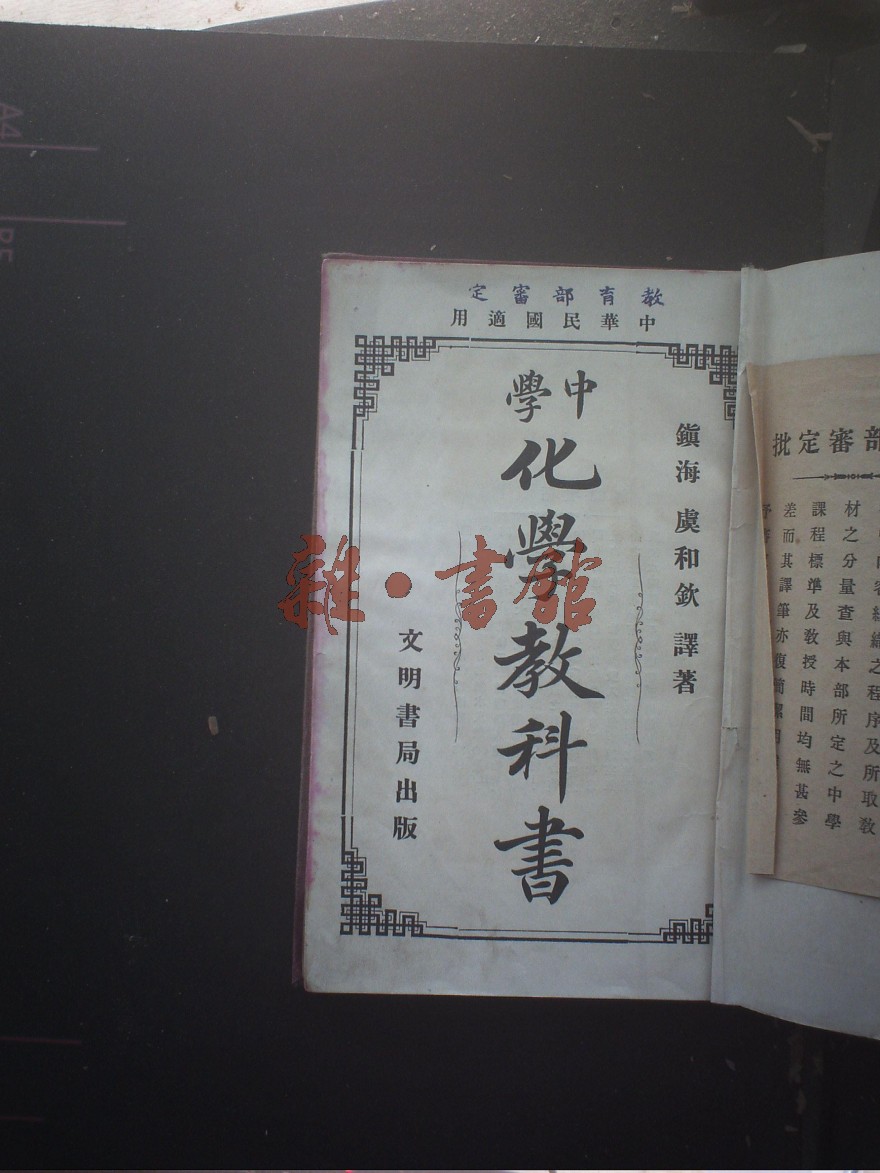 教育部審定
中華民國適用
中學
化學教科書
鎮海 虞和欽 譯著
文明書局出版
雜·書館
部審定批
之程序及所取教
材之分量查與本部所定之中學
課程標準及教授時間均無甚參
差而其譯筆亦復簡潔
A4
B5